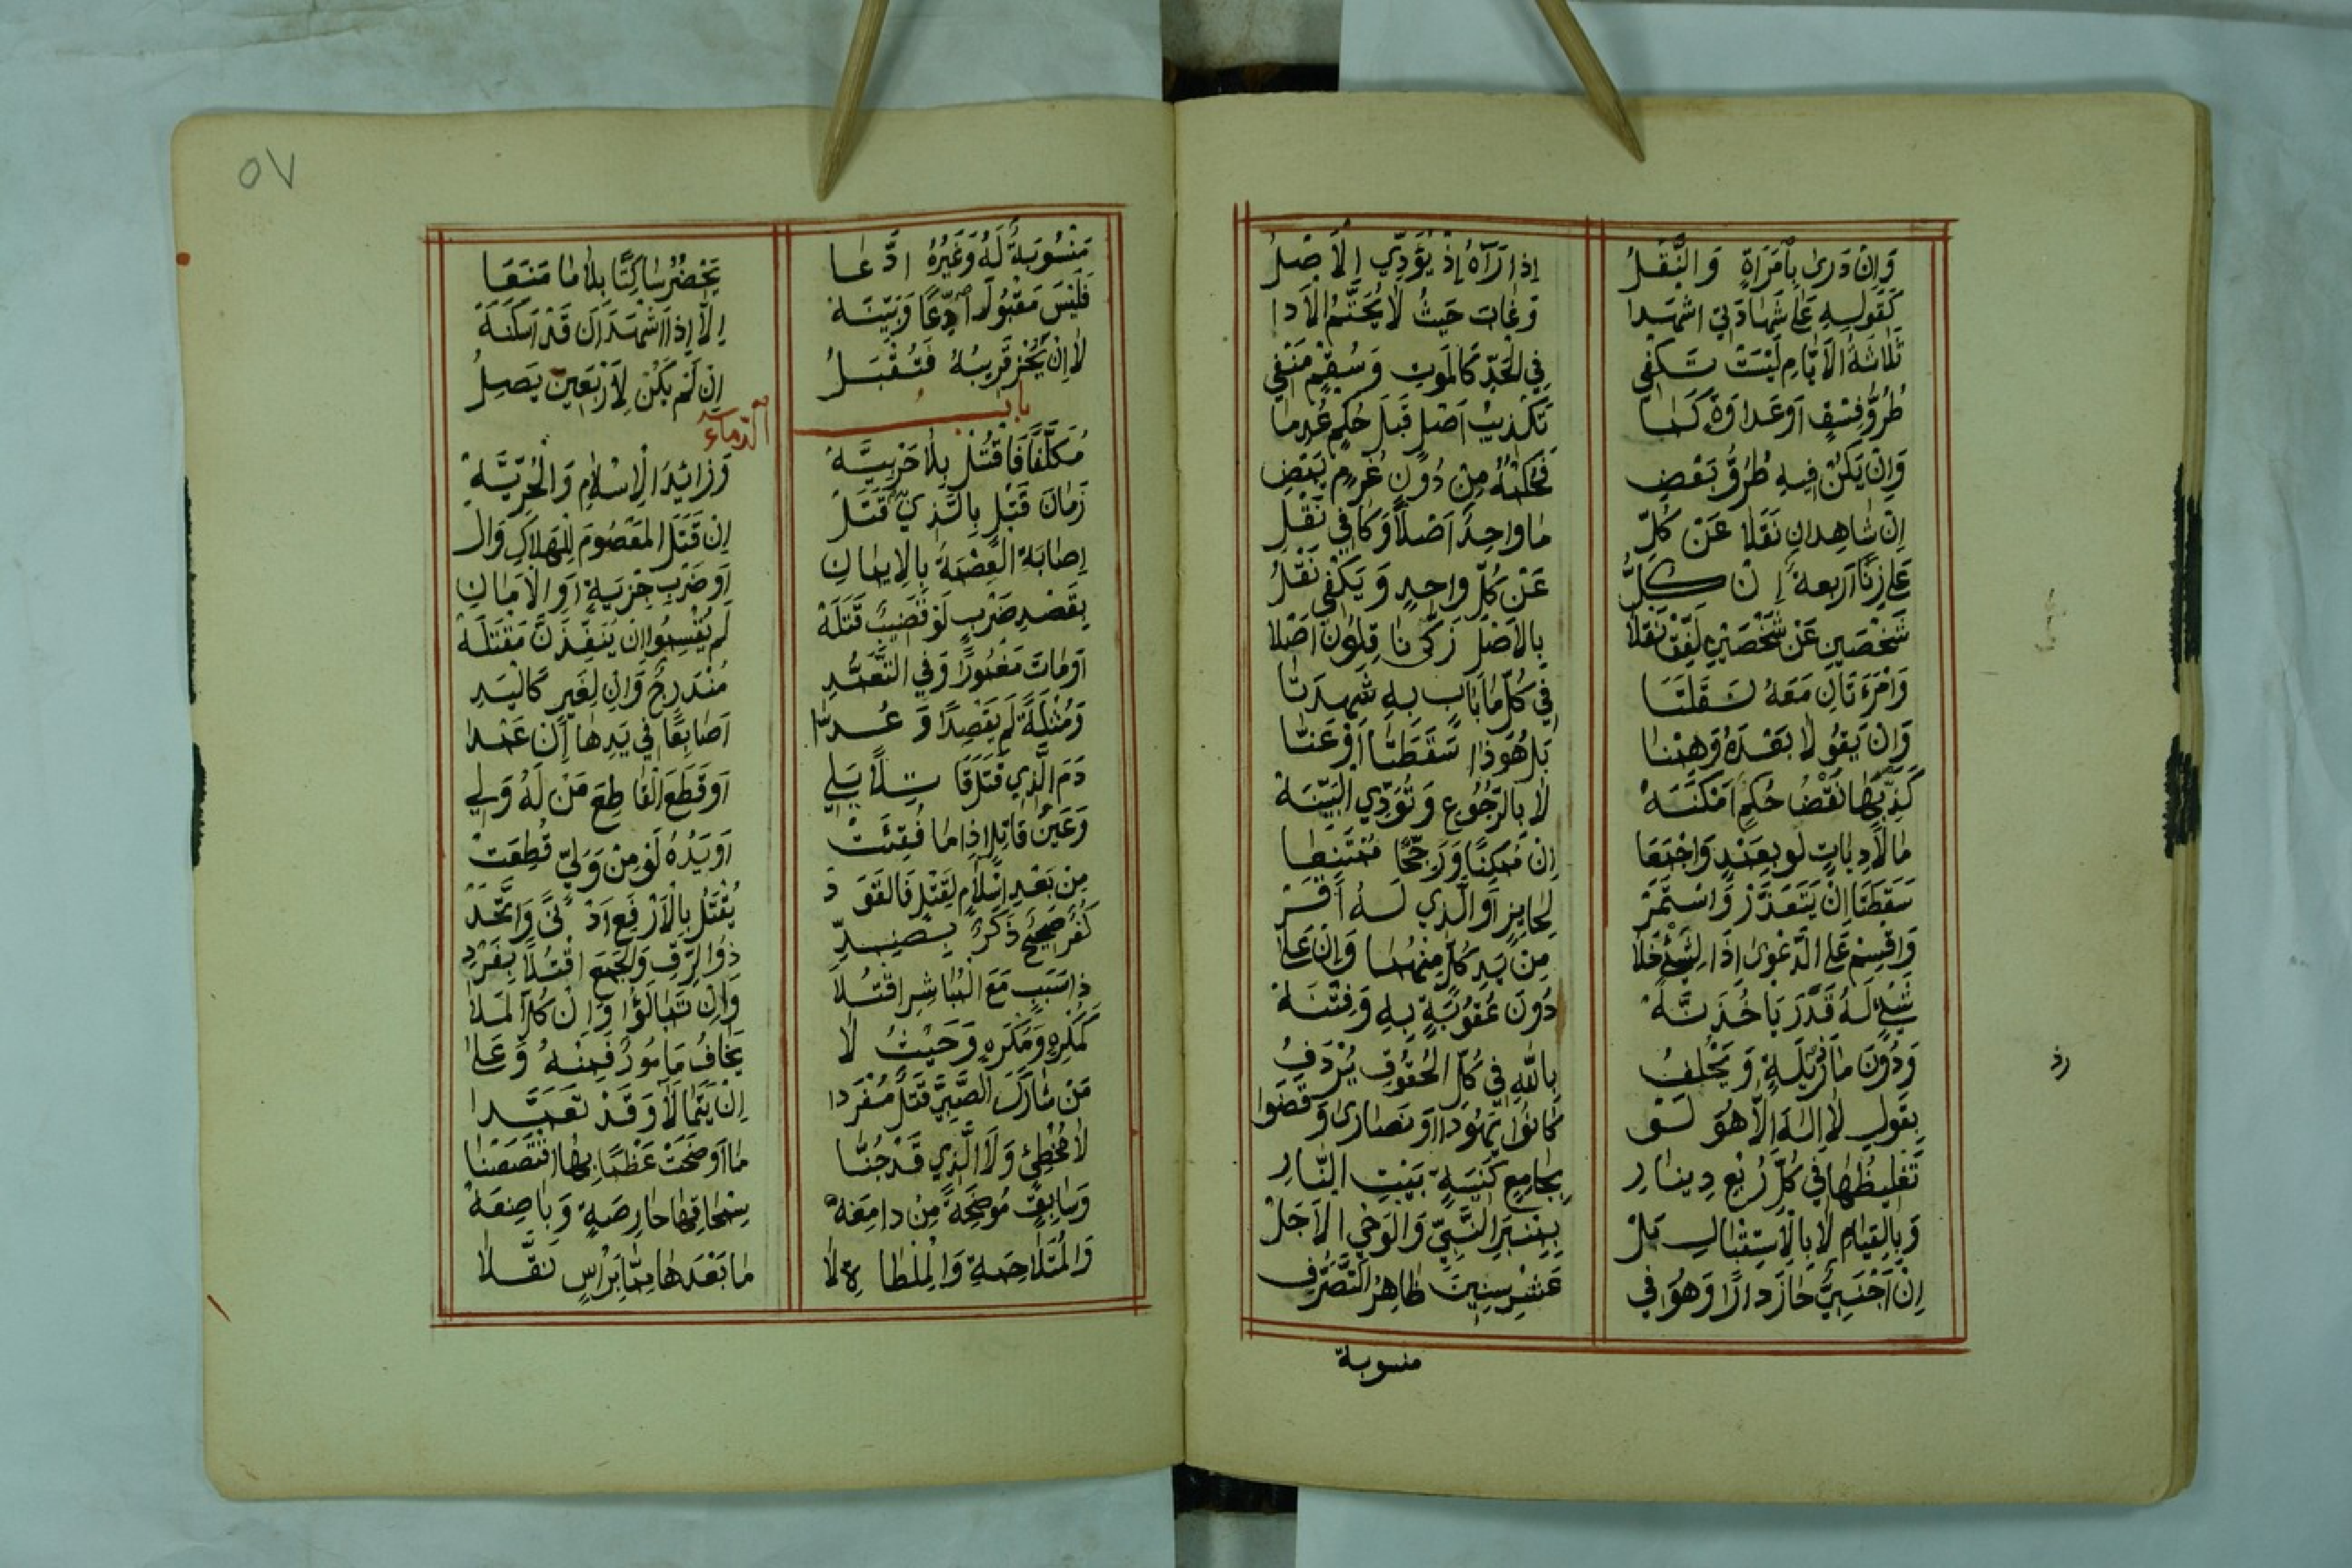 وَاِنْ دَرىٰ بِامْرَاَةٍ وَالنَّقْلُ اِذا رَآهُ اِذْ يُؤَدِّي الْاَصْلُ
كَقَولِهِ عَلىٰ شَهادَتِي اشْهَدا وَغابَ حَيثُ لَا يُحَتَّمُ الْاَدا
ثَلاثَةُ الْاَيّامِ لَيْسَتْ تَكْفِي فِي الْحَدِّ كَالْمَوتِ وَسُقْمٍ مَنْفِي
طُرُوُّ فِسْقٍ اَوْ عَداوَةٍ كَما تَكْذِيبُ اَصْلٍ قَبْلَ حُكْمٍ غُرِما
وَاِنْ يَكُنْ فِيهِ طُرُوُّ بَعْضِ مِنْ دُونِ غُرْمٍ يَمْضِ
اِنْ شاهِدانِ نَقَلا عَنْ كُلِّ ما واحِدٌ اَصْلاً وَكافِي نَقْلِ
عَلىٰ زِنًا اَرْبعةٌ اِنْ كُلُّ عَنْ كُلِّ واحِدٍ وَيَكْفِي نَقْلُ
شَخْصَينِ عَنْ شَخْصَينِ لَفِّقْ نَقْلا بِالْاَصْلِ زَكّىٰ ناقِلُونَ اَصْلا
وَامْرَءَتانِ مَعَهُ نَقَلَتا فِي كُلِّ ما بابٍ بِهِ شَهِدَتا
وَاِنْ يَقُولا بَعْدَهُ وَهِمْنا بَلْ هُوَ ذا سَقَطَتا اَوْ عَنّا
كَذِبِهِا نَقْضُ حُكْمٍ اَمْكَنَهْ لا بِالرُّجُوعِ وَتُؤَدِّي الْبَيِّنَهْ
مالاً دِياتٍ لَو بِعَمْدٍ وَاجْمَعا اِنْ مُمْكِنًا وَرَجِّحًا مُمْتَنِعا
سَقَطَتا اِنْ يَتَعَذَّرْ وَاسْتَمَرْ لِحايِزٍ اَوِ الَّذِي لَهُ اَقَرْ
وَاقْسِمْ عَلَى الدَّعْوىٰ اِذَا الشَّيْءُ خَلا مِنْ يَدِ كُلٍّ مِنْهُما وَاِنْ عَلىٰ
شَيْءٍ لَهُ قَدَرَ يَاخُذَنَّهْ دُونَ عُقُوبَةٍ بِهِ وَفِتْنَهْ
وَدُونَ ما رَذِيلَةٍ وَيَحْلِفُ بِاللهِ فِي كُلِّ الحُقُوقِ يُرْدَفُ
بِقَولِ لا اِلٰهَ اِلَّا هُوَ لَوْ كانُوا يَهُودًا اَو نَصارىٰ وَقَضَوا
تَغْلِيظُها فِي كُلِّ رُبْعِ دِينارِ بِجامِعٍ كَنِيسَةٍ بَيْتِ النّارِ
وَبِالْقِيامِ لا بِالْاِسْتِقْبالِ بَلْ بِمِنْبَرِ النَّبِيِّ وَالْوَخِي الْاَجَلْ
اِنْ اَجْنَبِيٌّ حازَ دارًا وَهُوَ فِي عَشْرِ سِنِينَ ظاهِرُ التَّصَرُّفِ
منسوبة
رذ
٥٧
مَنْسُوبَةٌ لَهُ وَغَيْرُهُ ادَّعا يَحْضُرُ ساكِتًا بِلا ما مَنَعا
فَلَيْسَ مَقْبُولَ ادِّعًا وَبَيِّنَهْ اِلّا اِذا اَشْهَدَ اَنْ قَدْ اَسْكَنَهْ
لا اِنْ يَحُزْ قَرِيبُهُ فَتُقْبَلُ اِنْ لَمْ يَكُنْ لِاَرْبَعِينَ يَصِلُ
باب الدماء
مُكَلَّفًا فَاقْتُلْ بِلا حَرْبِيَّهْ وَزائِدَ الْاِسْلامِ وَالْحُرِّيَّهْ
زَمانَ قَتْلٍ بِالَّذِي قَتَلَ اِنْ قَتَلَ الْمَعْصُومَ لِلْهَلاكِ وَالْ
اِصابَةِ الْعِصْمَةُ بِالْاِيمانِ اَو ضَرْبِ جِزْيَةٍ اَوِ الْاَمانِ
بِقَصْدِ ضَرْبٍ لَوْ قَضِيبَ قَتَلَهْ لَمْ يُقْسِمُوا اِنْ يُنَفِّذَنَّ مَقْتَلَهْ
اَوْ ماتَ مَغْمُورًا وَفِي التَّعَمُّدِ مُنْدَرِجٌ وَاِنْ لِغَيرٍ كَالْيَدِ
وَمُثْلَةً لَمْ يَقْصِدًا وَعُدَّا اَصابِعًا فِي يَدِها اِنْ عَمْدا
دَمَ الَّذِي قَتَلَ قاتِلاً يَلِي اَوْ قَطَعَ الْقاطِعَ مَنْ لَهُ وَلِي
وَعَيْنُ قاتِلٍ اِذا ما فُقِئَتْ اَوْ يَدُهُ لَوْ مِنْ وَلِيٍّ قُطِعَتْ
مِنْ بَعْدِ اِسْلامٍ لِقَتْلٍ فَالْقَوَدْ يُقْتَلُ بِالْاَرْفَعِ اَدْنىٰ وَاتَّحَدْ
كَغُرٍّ صَحِيحٌ ذَكَرٌ بِضِدِّ ذُو الرِّقِّ وَالْجَمْعَ اقْتُلاً بِفَرْدِ
ذا سَبَبٍ مَعَ الْمُباشِرِ اقْتُلا وَاِنْ تَمالَؤُا وَاِنْ كُلٌّ اَلَا
كَمُكْرِهٍ وَمُكْرَهٍ وَحَيثُ لا يَخافُ مَامُورٌ فَمِنْهُ وَعَلىٰ
مَنْ شارَكَ الصَّبِيَّ قَتْلٌ مُفْرَدا اِنْ يَتَمالَا وَقَدْ تَعَمَّدا
لا مُخْطِئٍ وَلا الَّذِي قَدْ جُنّا ما اَوْضَحَتْ عَظْمًا بِها اقْتَصَصْنا
وَسابِقٍ مُوضِحَةً مِنْ دامِعَهْ سِمْحاقِها حارِصَةٍ وَباضِعَهْ
وَالْمُتَلاحِمَةِ وَالْمِلْطاةِ لا ما بَعْدَها مِمّا بِرَاْسٍ نَقَّلا